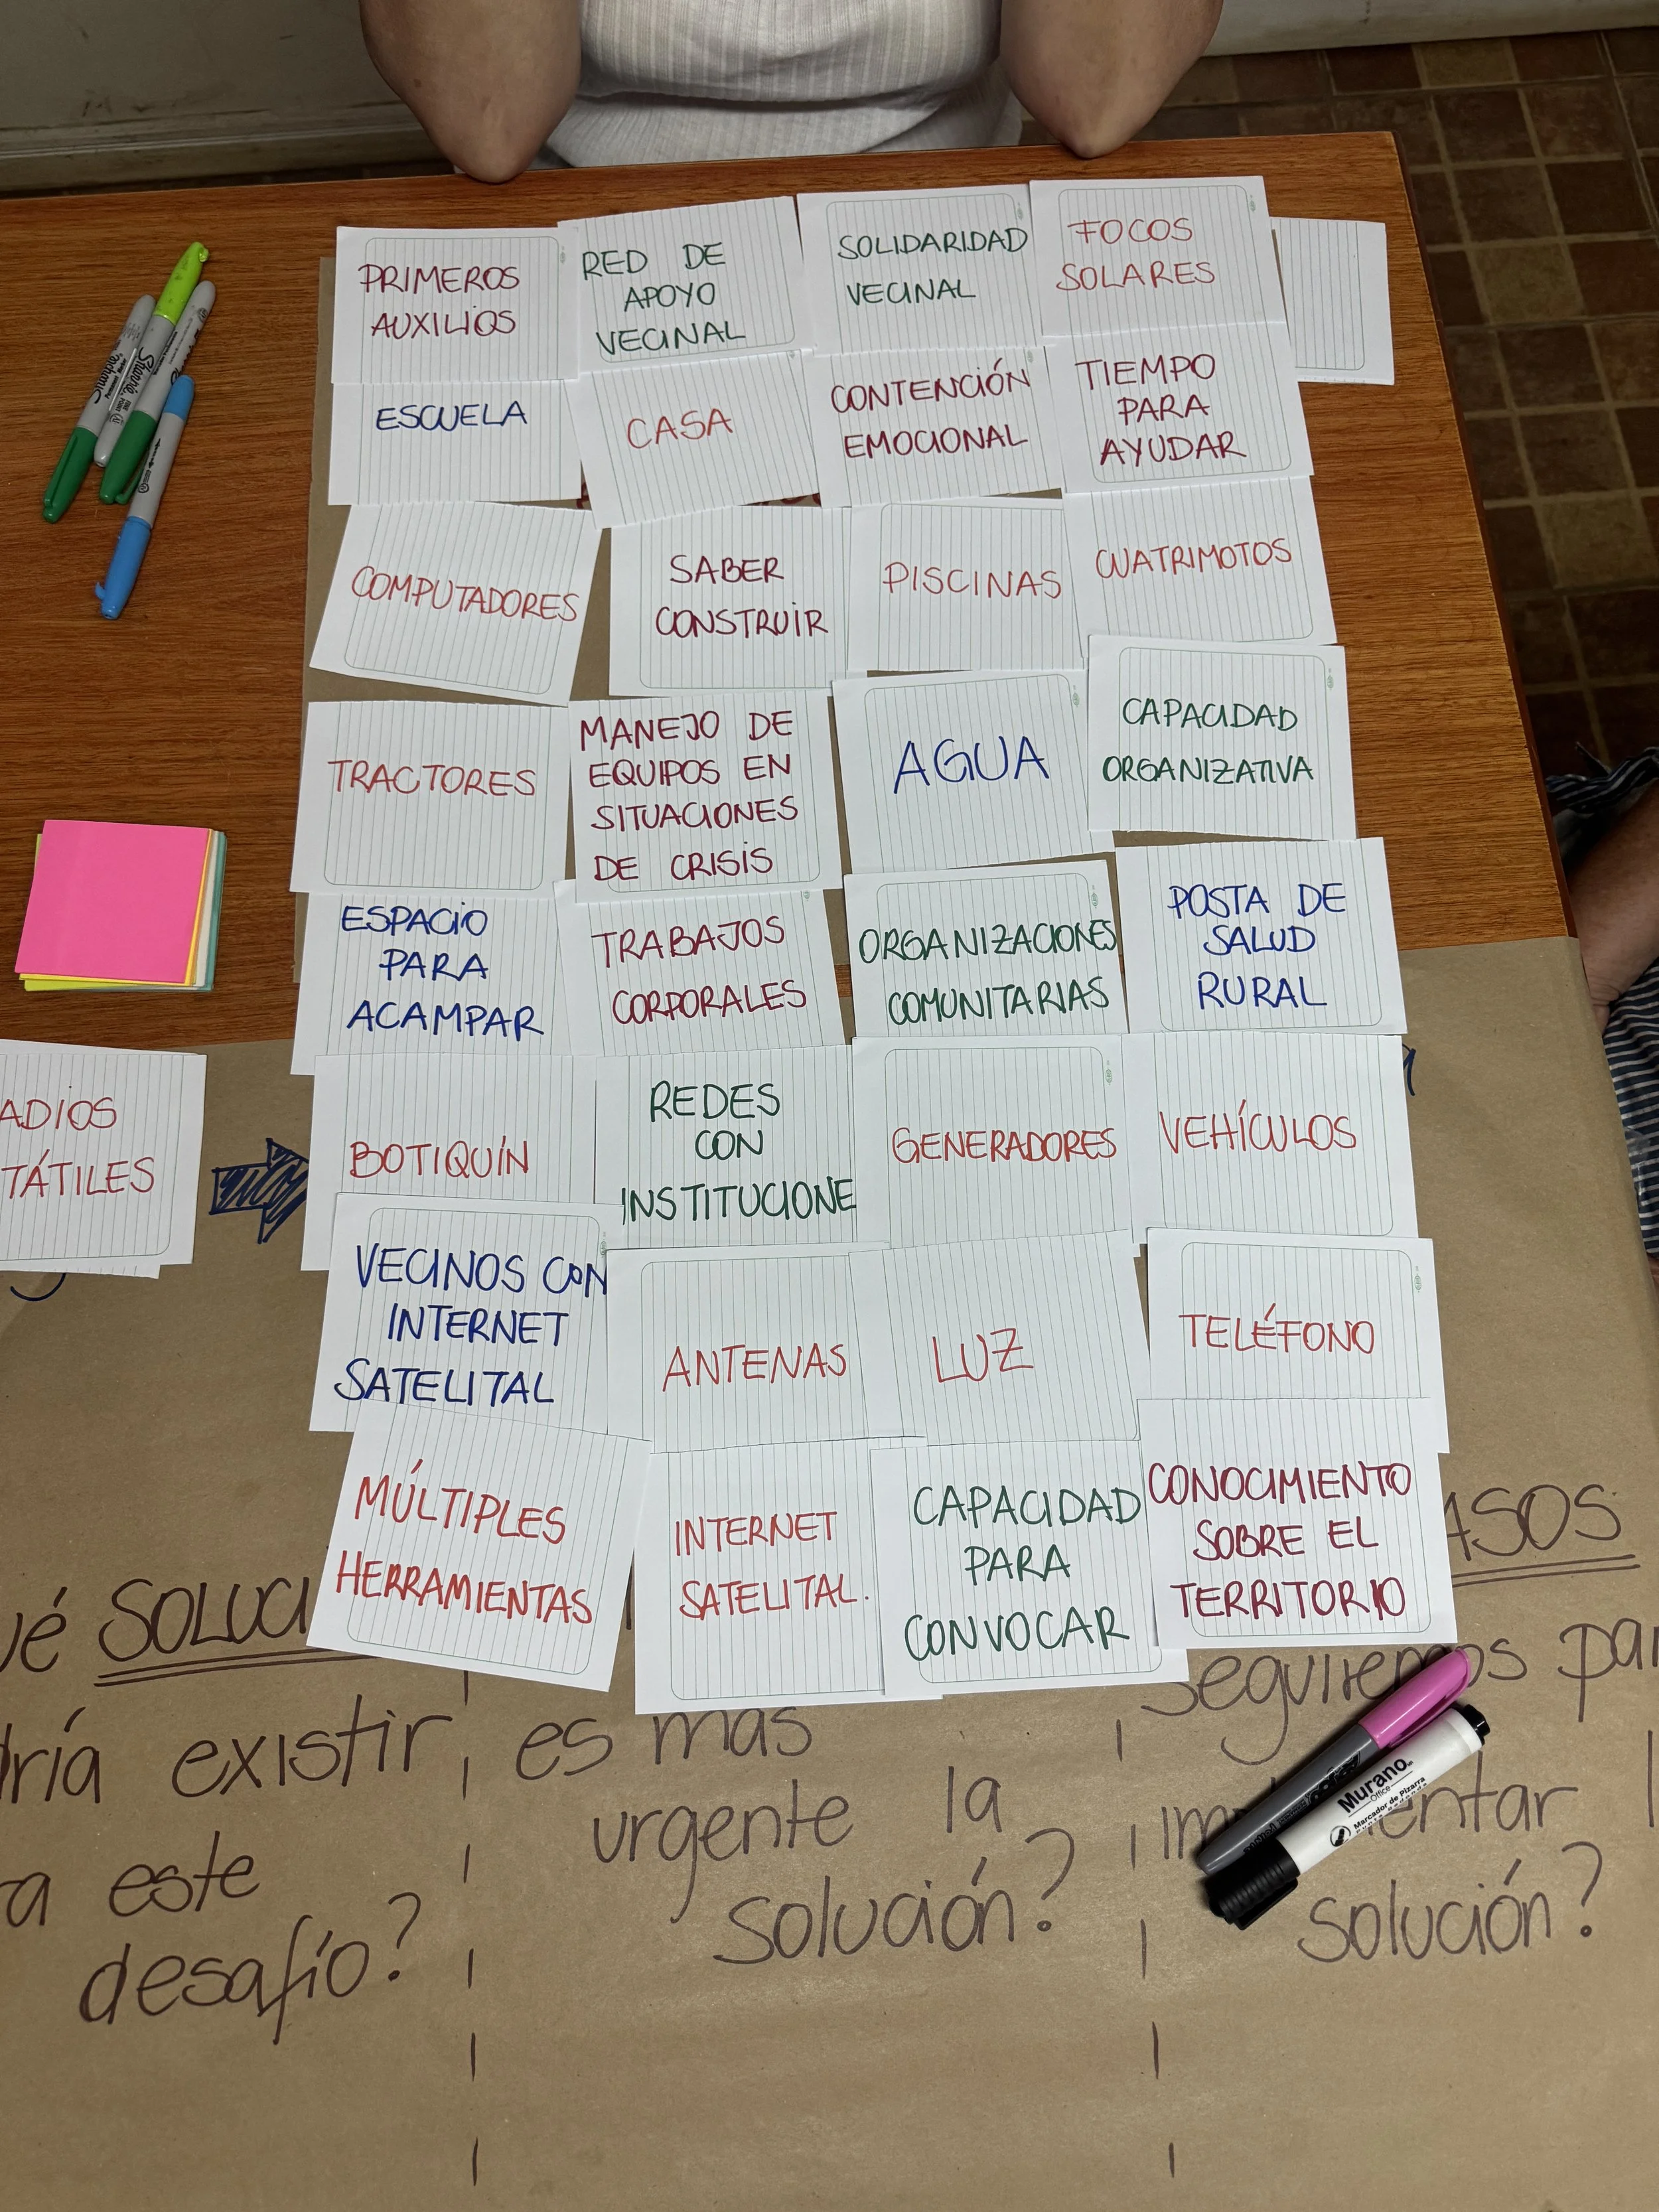 PRIMEROS
AUXILIOS
RED DE
APOYO
VECINAL
SOLIDARIDAD
VECINAL
FOCOS
SOLARES
ESCUELA
CASA
CONTENCIÓN
EMOCIONAL
TIEMPO
PARA
AYUDAR
COMPUTADORES
SABER
CONSTRUIR
PISCINAS
CUATRIMOTOS
TRACTORES
MANEJO DE
EQUIPOS EN
SITUACIONES
DE CRISIS
AGUA
CAPACIDAD
ORGANIZATIVA
ESPACIO
PARA
ACAMPAR
TRABAJOS
CORPORALES
ORGANIZACIONES
COMUNITARIAS
POSTA DE
SALUD
RURAL
ADIOS
TÁTILES
BOTIQUÍN
REDES
CON
INSTITUCIONE
GENERADORES
VEHÍCULOS
VECINOS CON
INTERNET
SATELITAL
ANTENAS
LUZ
TELÉFONO
MÚLTIPLES
HERRAMIENTAS
INTERNET
SATELITAL.
CAPACIDAD
PARA
CONVOCAR
CONOCIMIENTO
SOBRE EL
TERRITORIO
ué SOLUCI
dría existir
a este
desafío?
es más
urgente la
solución?
ASOS
seguiremos par
im entar l
solución?
Sharpie
Murano
Office
Marcador de Pizarra